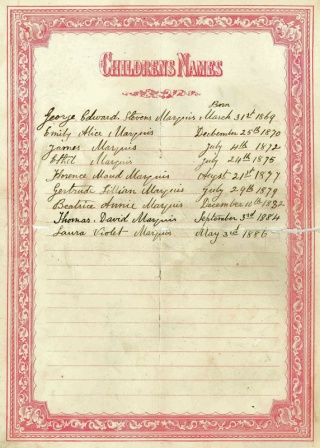 CHILDRENS NAMES
Born
George Edward Stevens Marquis March 31st 1869
Emily Alice Marquis December 25th 1870
James Marquis July 4th 1872
Ethel Marquis July 24th 1875
Florence Maud Marquis August 21st 1877
Gertrude Lillian Marquis July 29th 1879
Beatrice Annie Marquis December 10th 1882
Thomas. David Marquis September 3rd 1884
Laura Violet Marquis May 3rd 1886